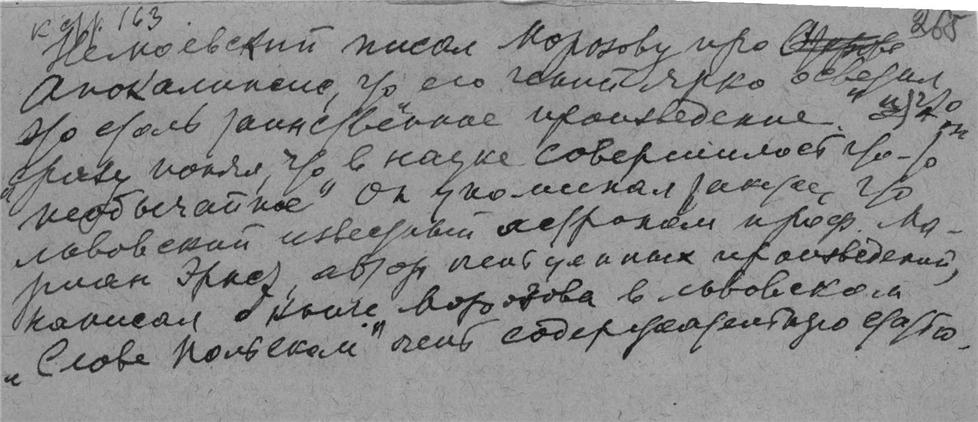 к стр. 163
265
Немоевский писал Морозову про
Апокалипсис, что его гений ярко осветил
это столь таинственное произведение.
"сразу понял, что в науке совершилось что-то
необычайное" Он упоминал также, что
львовский известный астроном проф. Ма-
риан Эрнст, автор многих ценных произведений,
написал о книге Морозова в львовском
"Слове Польском" очень содержательную статью.